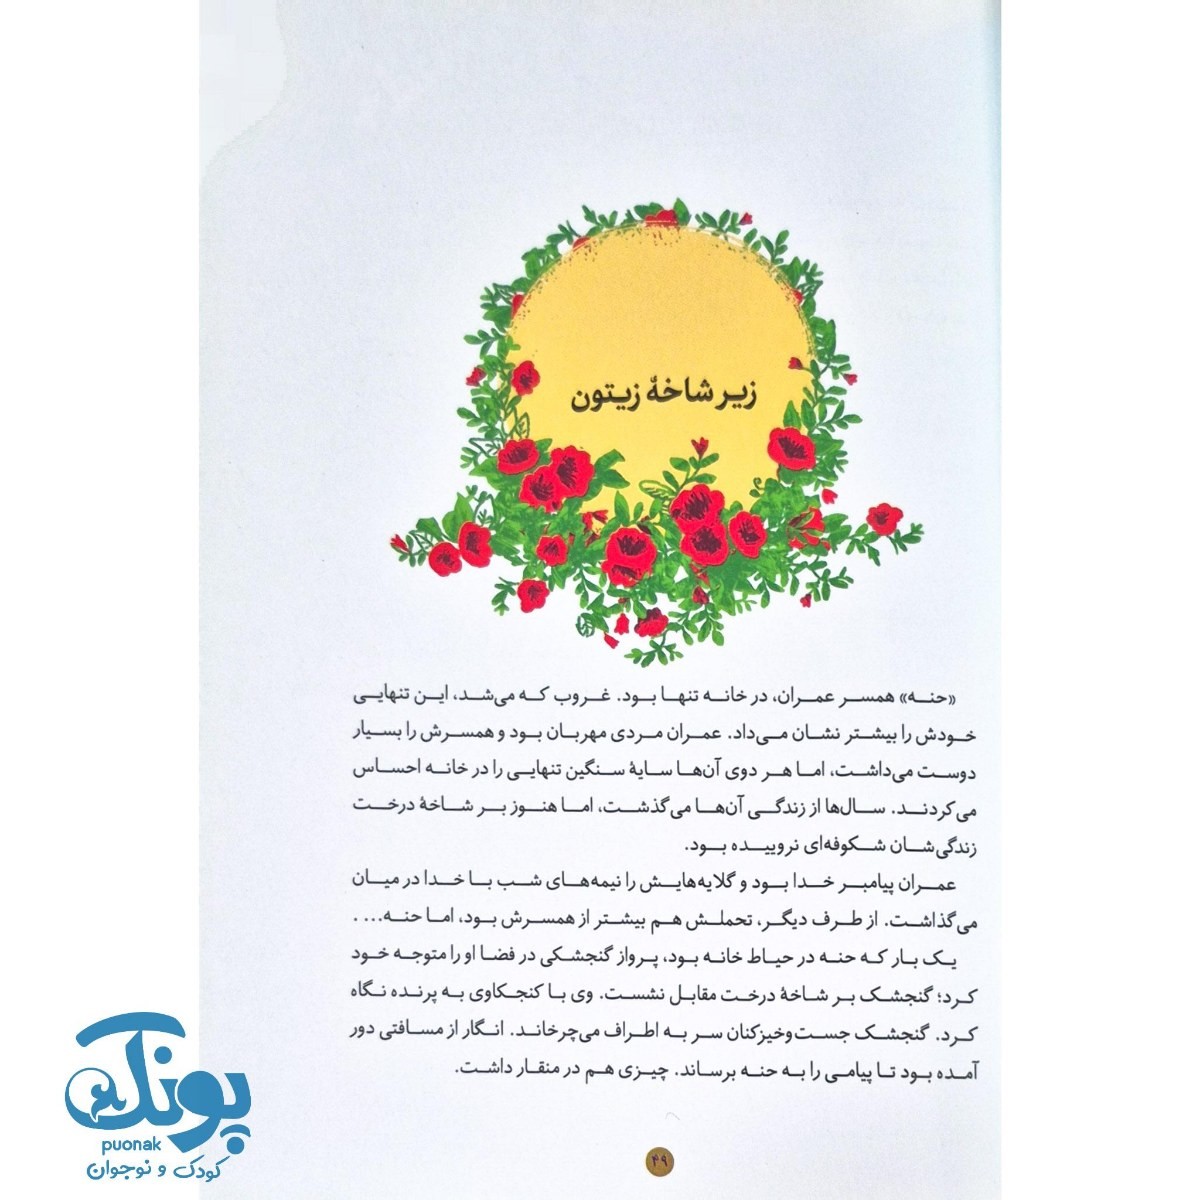 زیر شاخهٔ زیتون
«حنه» همسر عمران، در خانه تنها بود. غروب که می‌شد، این تنهایی
خودش را بیشتر نشان می‌داد. عمران مردی مهربان بود و همسرش را بسیار
دوست می‌داشت، اما هر دوی آن‌ها سایهٔ سنگین تنهایی را در خانه احساس
می‌کردند. سال‌ها از زندگی آن‌ها می‌گذشت، اما هنوز بر شاخهٔ درخت
زندگی‌شان شکوفه‌ای نروییده بود.
عمران پیامبر خدا بود و گلایه‌هایش را نیمه‌های شب با خدا در میان
می‌گذاشت. از طرف دیگر، تحملش هم بیشتر از همسرش بود، اما حنه... .
یک بار که حنه در حیاط خانه بود، پرواز گنجشکی در فضا او را متوجه خود
کرد؛ گنجشک بر شاخهٔ درخت مقابل نشست. وی با کنجکاوی به پرنده نگاه
کرد. گنجشک جست‌وخیزکنان سر به اطراف می‌چرخاند. انگار از مسافتی دور
آمده بود تا پیامی را به حنه برساند. چیزی هم در منقار داشت.
۴۹
پونک
puonak
کودک و نوجوان